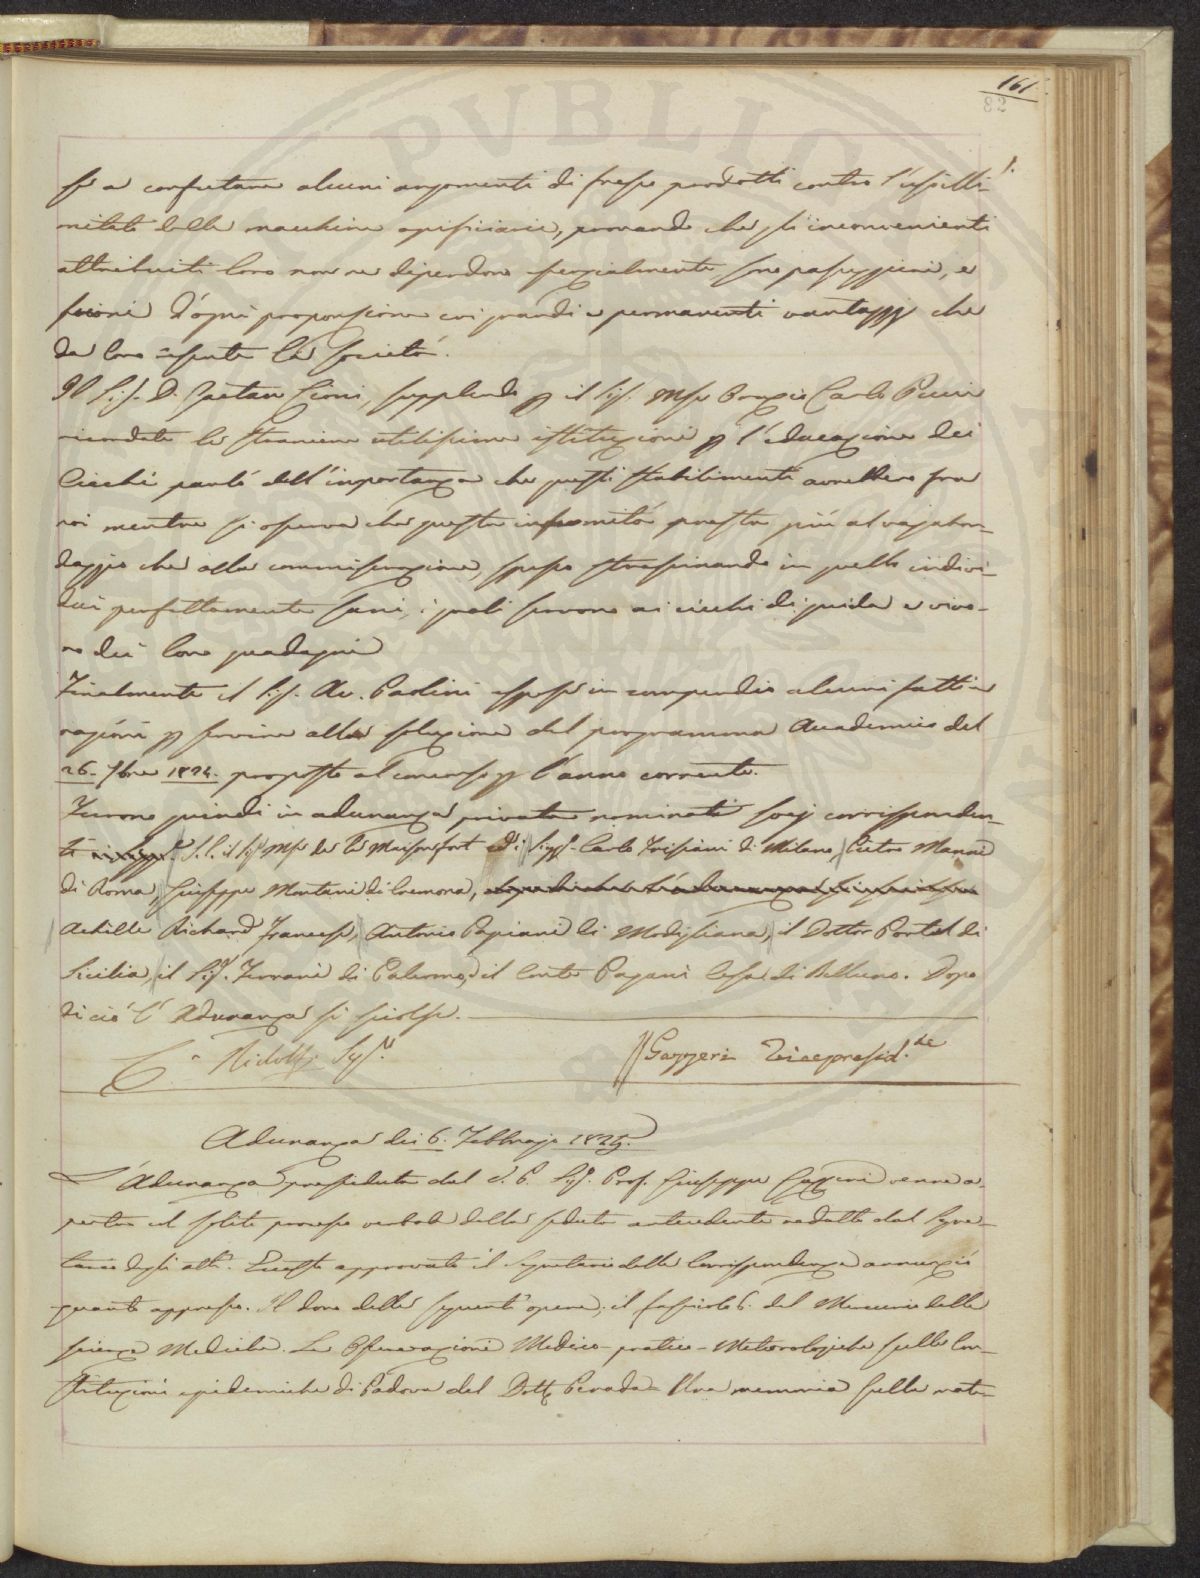 161
82
si a confutare alcuni argomenti di fresco prodotti contro l'utili-
metate delle macchine opificiarie, provando che gli inconvenienti
attribuiti loro non ne dipendono specialmente, sono passeggieri, e
fuori d'ogni proporzione coi grandi e permanenti vantaggi che
da loro risente la società.
Il Sig. D. Gaetano Cioni, supplendo p il Sig. Mse Orazio Carlo Pucci
ricordate le straniere utilissime istituzioni p l'educazione dei
Ciechi parlò dell'importanza che questi stabilimenti avrebbero fra
noi mentre si osserva che questa infermità presta più al vagabon-
daggio che alla commiserazione, spesso strascinando in quello indivi-
dui perfettamente sani, i quali servono ai ciechi di guida e vivo-
no dei loro guadagni
Finalmente il Sig. Av. Paolini espose in compendio alcuni fatti e
ragioni p servire alla soluzione del programma Accademico del
26. 7bre 1824. proposto al concorso p l'anno corrente.
Furono quindi in adunanza privata nominati socj corrisponden-
ti S.E. il Sig. Mse de la Maisonfort Sigg. Carlo Frisiani di Milano, Pietro Manni
di Roma, Giuseppe Montani di Cremona,
Achille Richard Francese, Antonio Papiani di Modigliana, il Dottor Portal di
Sicilia, il Sig. Ferrani di Palermo, il Conte Pagani Cesa di Belluno. Dopo
di ciò l'Adunanza si sciolse.
C. Ridolfi Seg.
Gazzeri Vicepresid.te
Adunanza dei 6. Febbrajo 1825.
L'Adunanza presieduta dal V. P. Sig. Prof. Giuseppe Gazzeri venne a-
perta col solito processo verbale della seduta antecedente redatto dal Segre-
tario degli atti. Questo approvato il Segretario delle Corrispondenze annunziò
quanto appresso. Il dono delle seguenti opere; il fascicolo 6. del Mercurio delle
scienze Mediche. Le Osservazioni Medico-pratico-Meteorologiche sulle Con-
stituzioni epidemiche di Padova del Dott. Penada. Una memoria sulla natu-